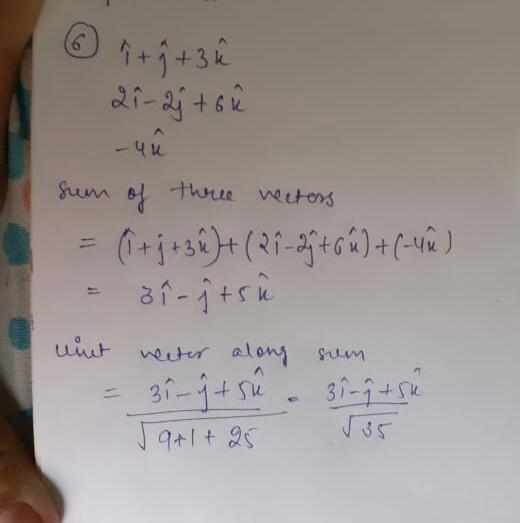 ⑥ î + ĵ + 3k̂
2î - 2ĵ + 6k̂
-4k̂
Sum of three vectors
= (î + ĵ + 3k̂) + (2î - 2ĵ + 6k̂) + (-4k̂)
= 3î - ĵ + 5k̂
Unit vector along sum
= 3î - ĵ + 5k̂ / √9+1+25 = 3î - ĵ + 5k̂ / √35